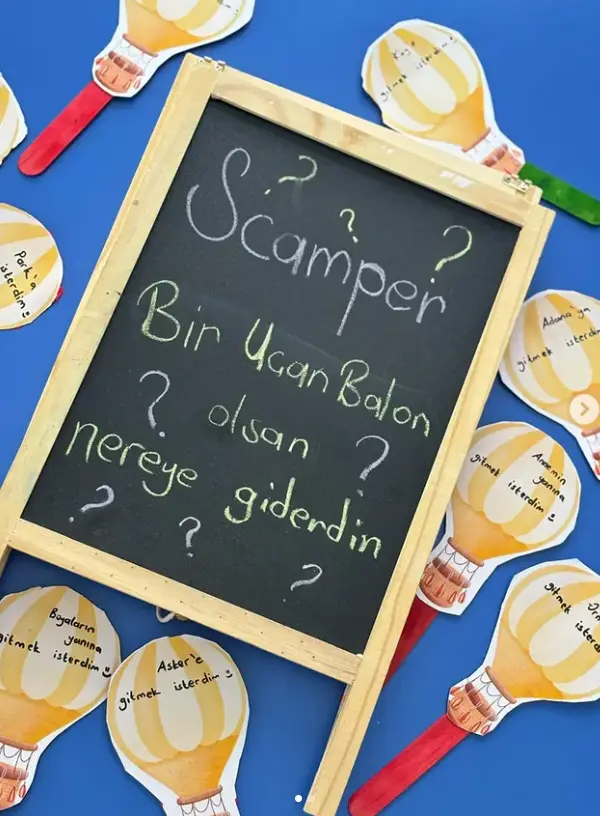 Scamper
? ? ?
Bir Uçan Balon
? olsan ?
nereye giderdin
? ? ?
gitmek isterdim
Park'a
isterdim
Adana'ya
gitmek isterdim
Annemin
yanına
gitmek isterdim
gitmek
Boyaların
yanına
gitmek isterdim
Asker'e
gitmek isterdim